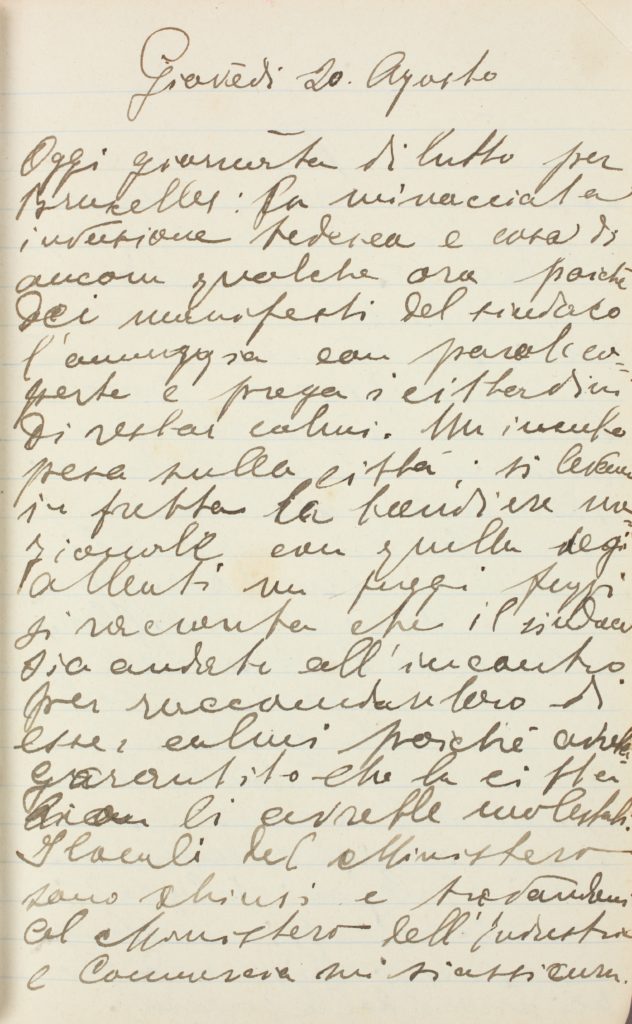 Giovedì 20. Agosto
Oggi giornata di lutto per
Bruxelles: La minacciata
invasione tedesca e cosa di
ancora qualche ora poichè
dei manifesti del sindaco
l'annunzia con parole co=
perte e prega i cittadini
di restar calmi. Un incubo
pesa sulla città; si levano
in fretta la bandiere na=
zionale con quella degi
alleati un fuggi fuggi
si racconta che il sindaco
sia andato all'incontro
per raccomandar loro di
esser calmi poichè avrebbe
garantito che la città
li avrebbe molestati.
I locali del Ministero
sono chiusi e trovandomi
al Ministero dell'Industria
e Commercio mi si assicura.